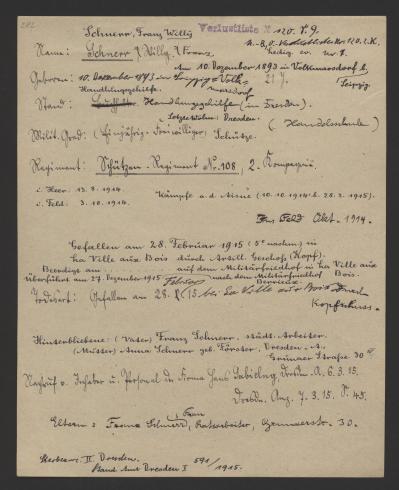 Schnerr, Franz Willy Verlustliste X 120. S. 9.
Name: Schnerr, Willy, Franz ledig. ev.
Am 10. Dezember 1893 in Volkmarsdorf b. Leipzig
Geboren: 10. Dezember 1893 in Leipzig-Volkmarsdorf 21 J.
Handlungsgehilfe.
Stand: Handlungsgehilfe (in Dresden).
Letzter Wohn: Dresden. (Handelsschule)
Milit. Grad: (Einjährig-Freiwilliger) Schütze.
Regiment: Schützen-Regiment No. 108, 2. Kompagnie.
i. Heer: 13. 8. 1914. Kämpfe a. d. Aisne (10. 10. 1914 b. 28. 2. 1915).
i. Feld: 3. 10. 1914.
Ins Feld Okt. 1914.
Gefallen am 28. Februar 1915 (5° nachm) in
La Ville aux Bois durch Artill. Geschoß (Kopf).
Beerdigt am auf dem Militärfriedhof in La Ville aux Bois.
überführt am 27. Dezember 1915 nach dem Militärfriedhof
Todesart: Gefallen am 28. 2. 15 bei La Ville aux Bois durch
Kopfschuss.
Hinterbliebene: (Vater) Franz Schnerr, städt. Arbeiter.
(Mutter) Anna Schnerr geb. Förster, Dresden-A.
Grunaer Straße 30
Nachruf v. Inhaber u. Personal d. Firma Hans Dresdn. A. 6. 3. 15.
Dresdn. Anz. 7. 3. 15. S. 45.
Eltern: Franz Schnerr, Ratsarbeiter, Grunaerstr. 30.
u. Frau
Sterbeur. II. Dresden.
Stand. Amt Dresden I 591/1915.